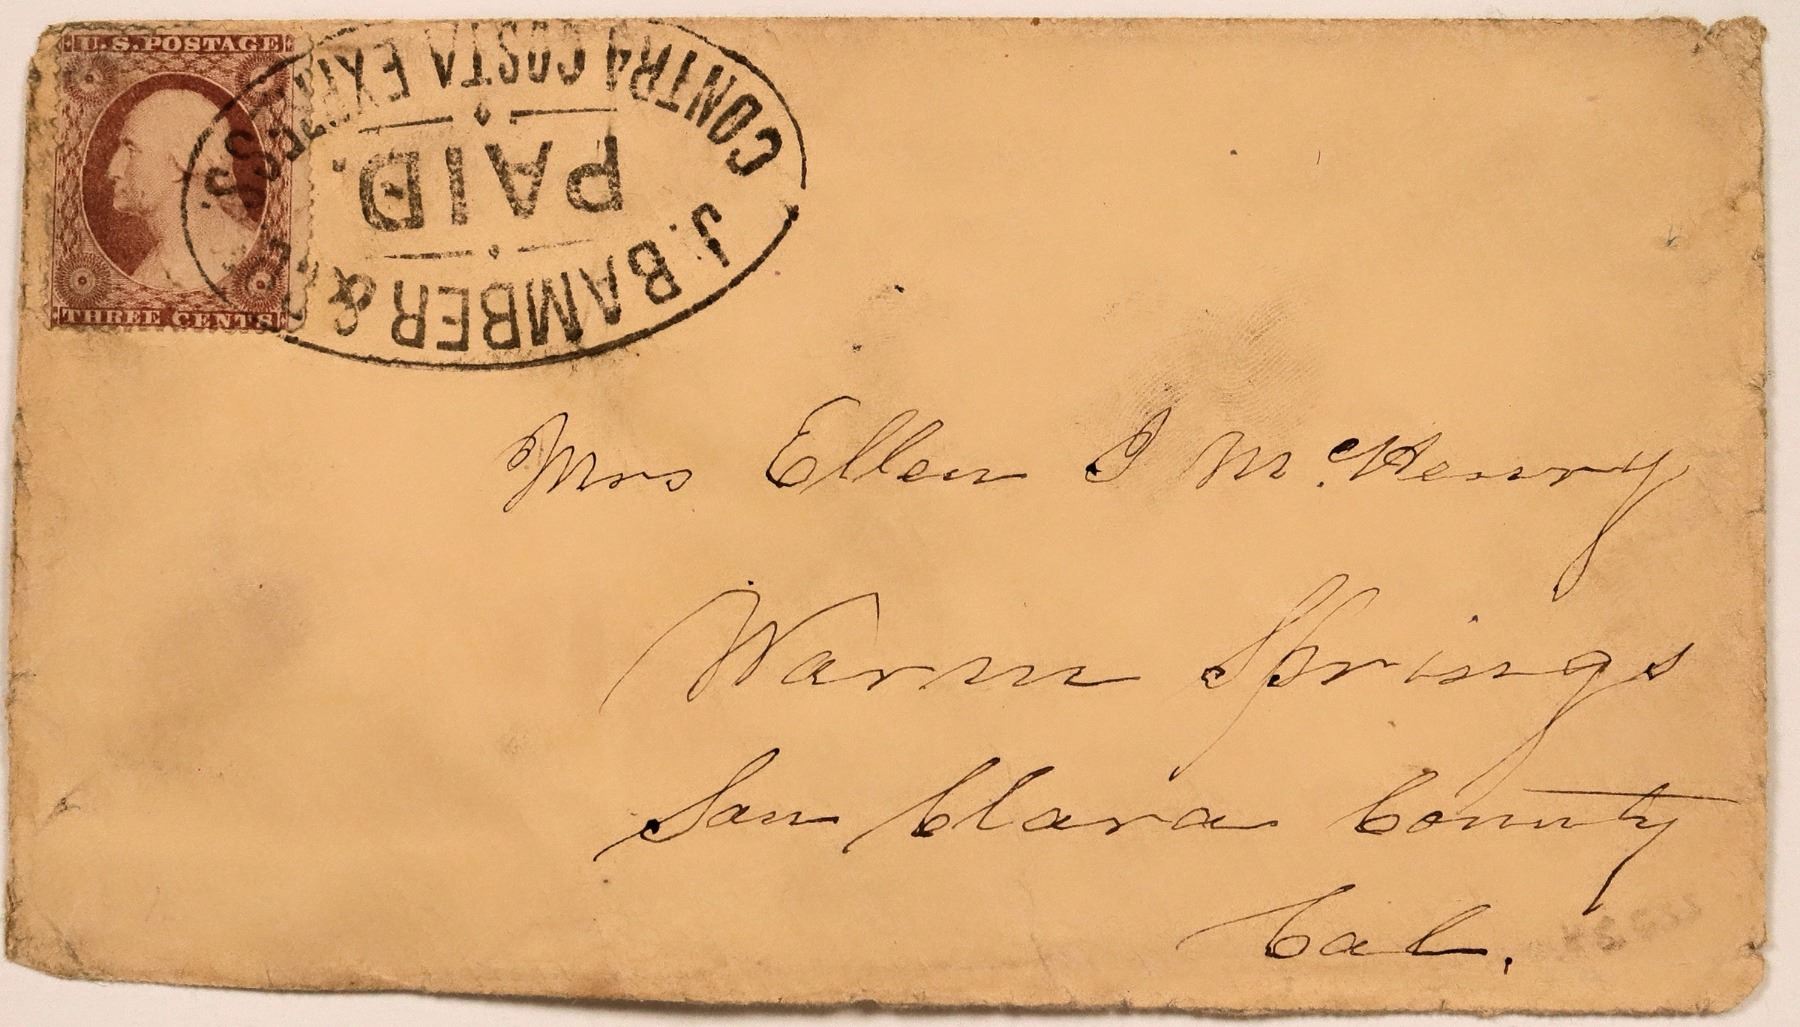 U.S. POSTAGE
THREE CENTS
J. BAMBER & CO'S.
PAID.
CONTRA COSTA EXPRESS.
Mrs Ellen J McHenry
Warm Springs
San Clara County
Cal.